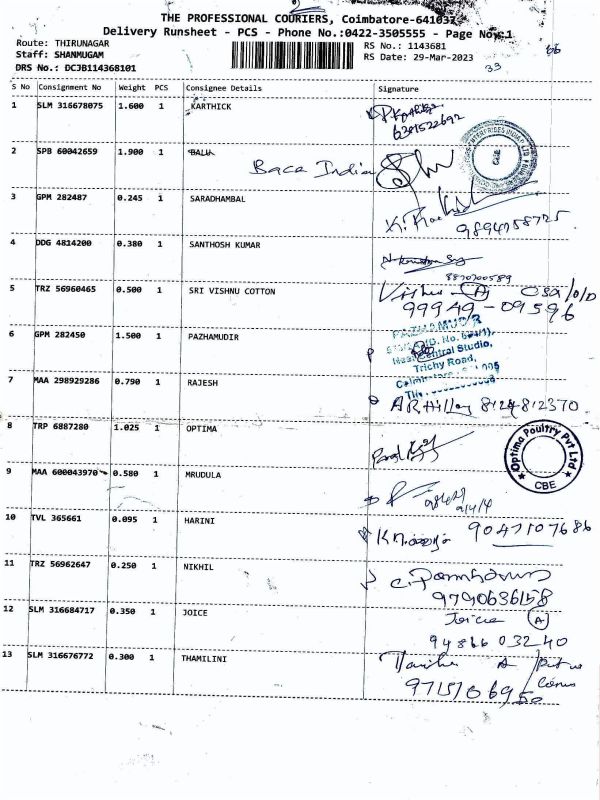 THE PROFESSIONAL COURIERS, Coimbatore-641037
Delivery Runsheet - PCS - Phone No.:0422-3505555 - Page No.:1
Route: THIRUNAGAR
RS No.: 1143681
Staff: SHANMUGAM
RS Date: 29-Mar-2023
DRS No.: DCJB114368101
33
S No Consignment No Weight PCS Consignee Details Signature
1 SLM 316678075 1.600 1 KARTHICK
6381522692
2 SPB 60042659 1.900 1 BALU
Baca India
3 GPM 282487 0.245 1 SARADHAMBAL
9894758725
4 DDG 4814200 0.380 1 SANTHOSH KUMAR
8870700589
5 TRZ 56960465 0.500 1 SRI VISHNU COTTON
99949-09596
6 GPM 282450 1.500 1 PAZHAMUDIR
PAZHAMUDIR
Central Studio,
Trichy Road,
7 MAA 298929286 0.790 1 RAJESH
8124812370
8 TRP 6887280 1.025 1 OPTIMA
Optima Poultry Pvt Ltd
CBE
9 MAA 600043970 0.580 1 MRUDULA
10 TVL 365661 0.095 1 HARINI
9047107686
11 TRZ 56962647 0.250 1 NIKHIL
9790636158
12 SLM 316684717 0.350 1 JOICE
Joice A
94866 03240
13 SLM 316676772 0.300 1 THAMILINI
9715706950